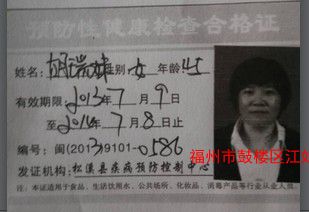 预防性健康检查合格证
姓名: 胡瑞 性别 女 年龄
有效期限 2013年7月9日
至 2014年7月8日止
编号: 闽(2013)9101-0586
发证机关: 松溪县疾病预防控制中心
注:本证适用于食品、生活饮用水、公共场所、化妆品、消毒产品等行业从业人员
福州市鼓楼区江